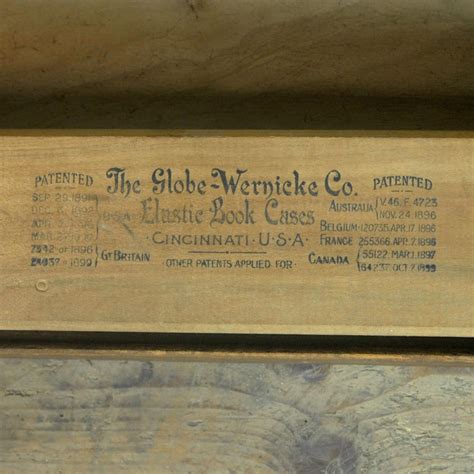 PATENTED
SEP. 29, 1891
U·S·A
7542 OF 1896
24037 OF 1899
GT BRITAIN
The Globe-Wernicke Co.
Elastic Book Cases
·CINCINNATI·U·S·A·
OTHER PATENTS APPLIED FOR·
PATENTED
AUSTRALIA V.46, F. 4723
NOV. 24, 1896
BELGIUM·120735 APR. 17, 1896
FRANCE 255366 APR. 7, 1896
CANADA 55122 MAR. 1, 1897
64237 OCT. 7, 1899